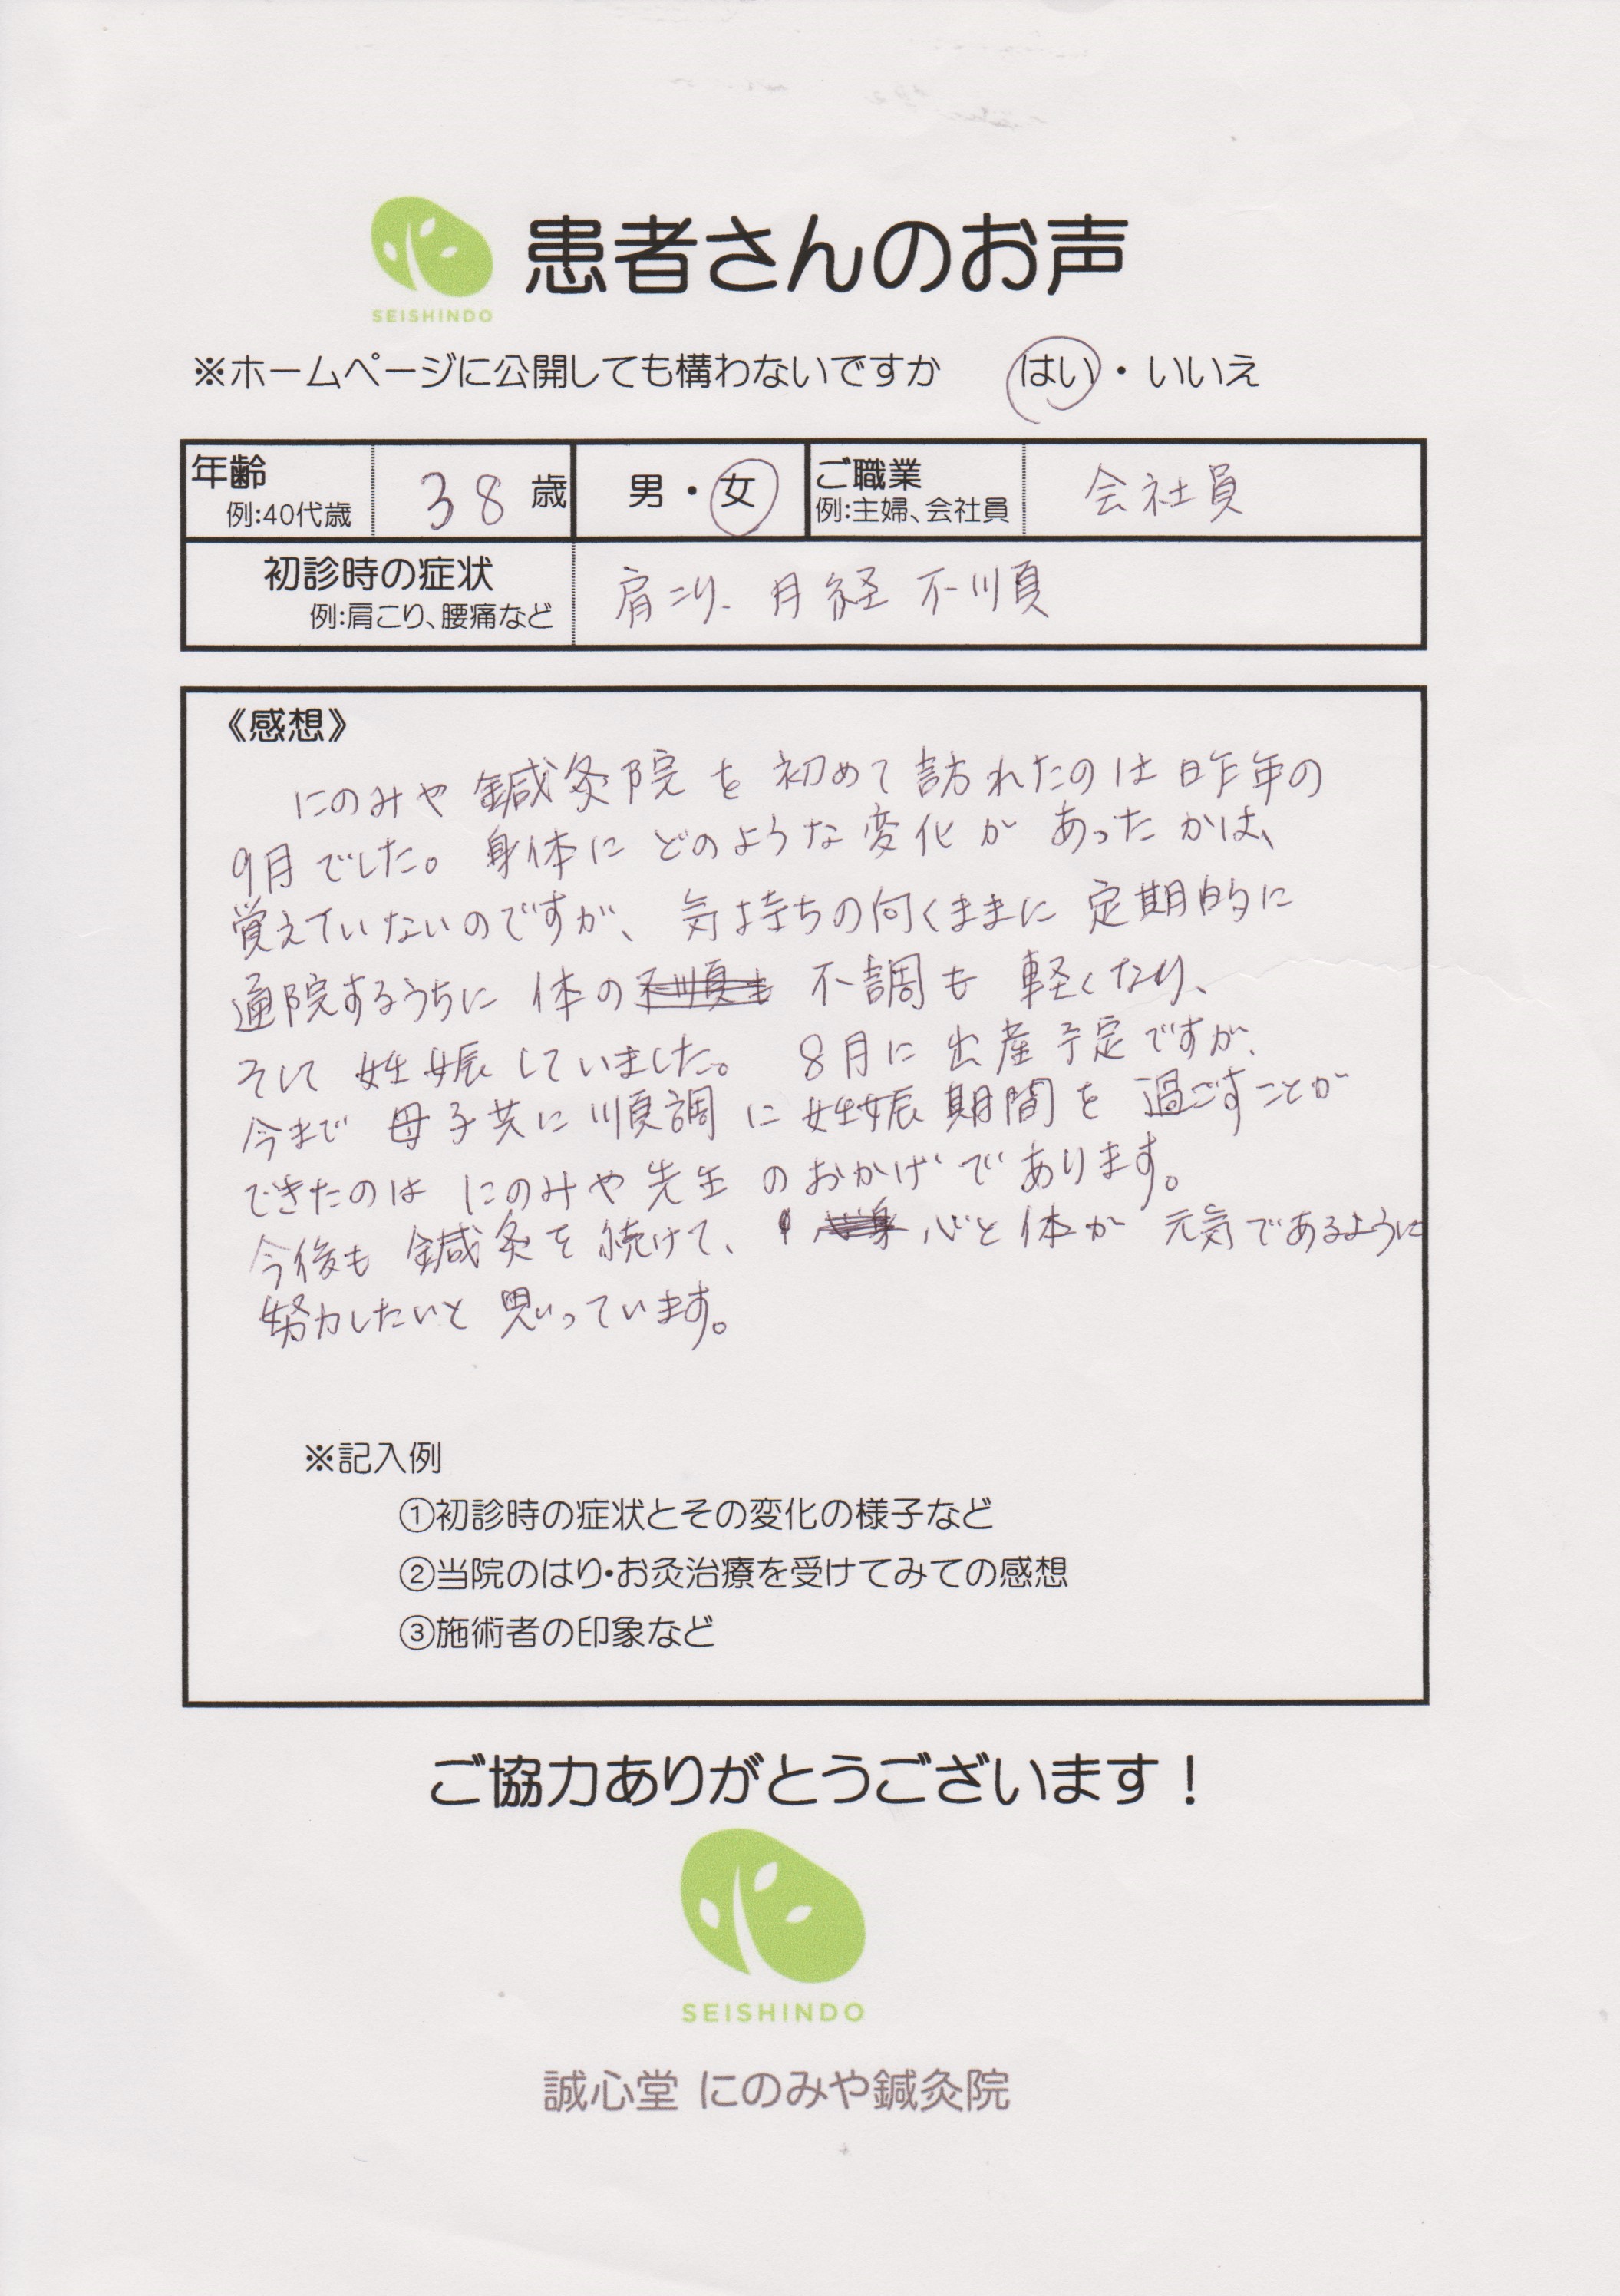 SEISHINDO
患者さんのお声
※ホームページに公開しても構わないですか はい・いいえ
年齢 38歳 男・女 ご職業 会社員
例:40代歳 例:主婦、会社員
初診時の症状 肩こり、月経不順
例:肩こり、腰痛など
《感想》
にのみや鍼灸院を初めて訪れたのは昨年の
9月でした。身体にどのような変化があったかは、
覚えていないのですが、気持ちの向くままに定期的に
通院するうちに体の不順も不調も軽くなり、
そして妊娠していました。8月に出産予定ですが、
今まで母子共に順調に妊娠期間を過ごすことが
できたのはにのみや先生のおかげであります。
今後も鍼灸を続けて、心と体が元気であるように
努力したいと思っています。
※記入例
①初診時の症状とその変化の様子など
②当院のはり・お灸治療を受けてみての感想
③施術者の印象など
ご協力ありがとうございます!
SEISHINDO
誠心堂 にのみや鍼灸院